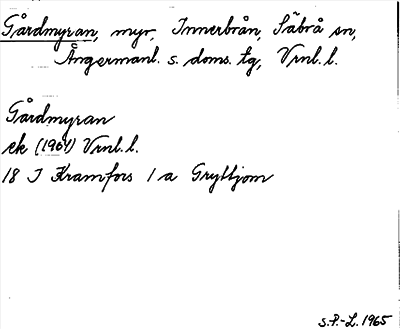 Gårdmyran, myr, Innerbrån, Säbrå sn,
Ångermanl. s. doms. tg, Vrnl. l.
Gårdmyran
ek (1961) Vrnl. l.
18 J Kramfors 1 a Gryttjom
S.P.-L. 1965